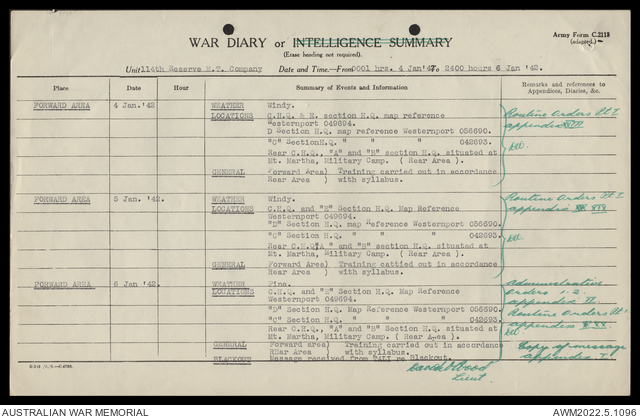 Army Form C.2118
(adapted.)
WAR DIARY or INTELLIGENCE SUMMARY
(Erase heading not required).
Unit 114th Reserve M.T. Company Date and Time.—From 0001 hrs. 4 Jan '42 To 2400 hours 6 Jan '42.
Place Date Hour Summary of Events and Information Remarks and references to Appendices, Diaries, &c.
FORWARD AREA 4 Jan.'42 WEATHER Windy.
LOCATIONS C.H.Q. & E. section H.Q. map reference
Westernport 049694.
D Section H.Q. map reference Westernport 056690.
"C" SectionH.Q. " " " 042693.
Rear C.H.Q., "A" and "B" section H.Q. situated at
Mt. Martha, Military Camp. ( Rear Area ).
GENERAL Forward Area) Training carried out in accordance
Rear Area ) with syllabus.
Routine Orders Pt I
appended
FORWARD AREA 5 Jan. '42. WEATHER Windy.
LOCATIONS C.H.Q. and "E" Section H.Q. Map Reference
Westernport 049694.
"D" Section H.Q. map Reference Westernport 056690.
"C" Section H.Q. " " " 042693.
Rear C.H.Q"A " and "B" section H.Q. situated at
Mt. Martha, Military Camp. ( Rear Area ).
GENERAL Forward Area) Training cattied out in accordance
Rear Area ) with syllabus.
Routine Orders Pt I
appendix
FORWARD AREA 6 Jan '42. WEATHER Fine.
LOCATIONS C.H.Q. and "E" Section H.Q. Map Reference
Westernport 049694.
"D" Section H.Q. Map Reference Westernport 056690.
"C" Section H.Q. " " " 042693.
Rear C.H.Q., "A" and "B" Section H.Q. situated at
Mt. Martha, Military Camp. ( Rear Area ).
GENERAL Forward area) Training carried out in accordance
REar Area ) with syllabus.
BLACKOUT Message received from re Blackout.
Administrative
Orders 1-2
appended II
Routine Orders Pt I
appendix XX
Copy of message
appended I.
Wood
Lieut
AUSTRALIAN WAR MEMORIAL AWM2022.5.1096